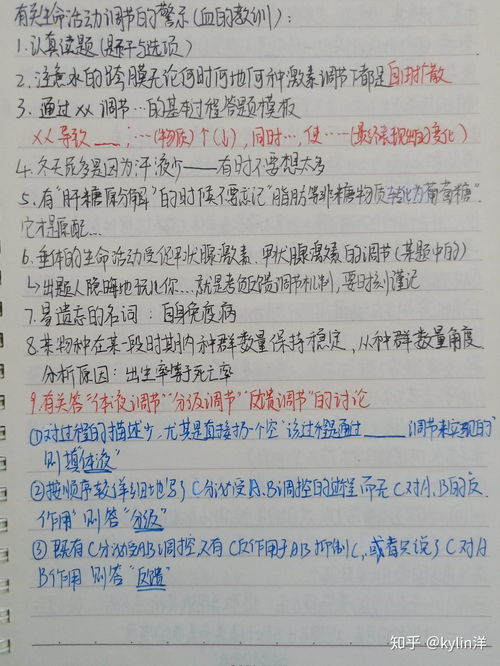 有关生命活动调节的警示(血的教训):
1.认真读题(题干与选项)
2.注意水的跨膜无论何时何地何种激素调节下都是自由扩散
3.通过××调节…的基本过程答题模板
××导致___;…(物质)↑(↓),同时…,使……(最终表现出的变化)
4.冬天尿多是因为汗液少——有时不要想太多
5.有"肝糖原分解"的时候不要忘记"脂肪等非糖物质转化为葡萄糖".
它才是原配…
6.垂体的生命活动受促甲状腺激素.甲状腺激素的调节(某题中的)
↳出题人隐晦地玩儿你…就是考负反馈调节机制,要时刻谨记
7.易遗忘的名词:自身免疫病
8.某物种在某一段时期内种群数量保持稳定,从种群数量角度
分析原因:出生率等于死亡率
9.有关答"体液调节""分级调节""反馈调节"的讨论
①对过程的描述少,尤其是直接扔个空"该过程是通过____调节来实现的"
则填"体液"
②按顺序较详细地写了C分泌受A.B调控的过程而无C对A.B的反
作用 则答"分级"
③既有C分泌受AB调控又有C反作用于AB抑制C,或者只说了C对A
B作用 则答"反馈"
知乎 @kylin洋